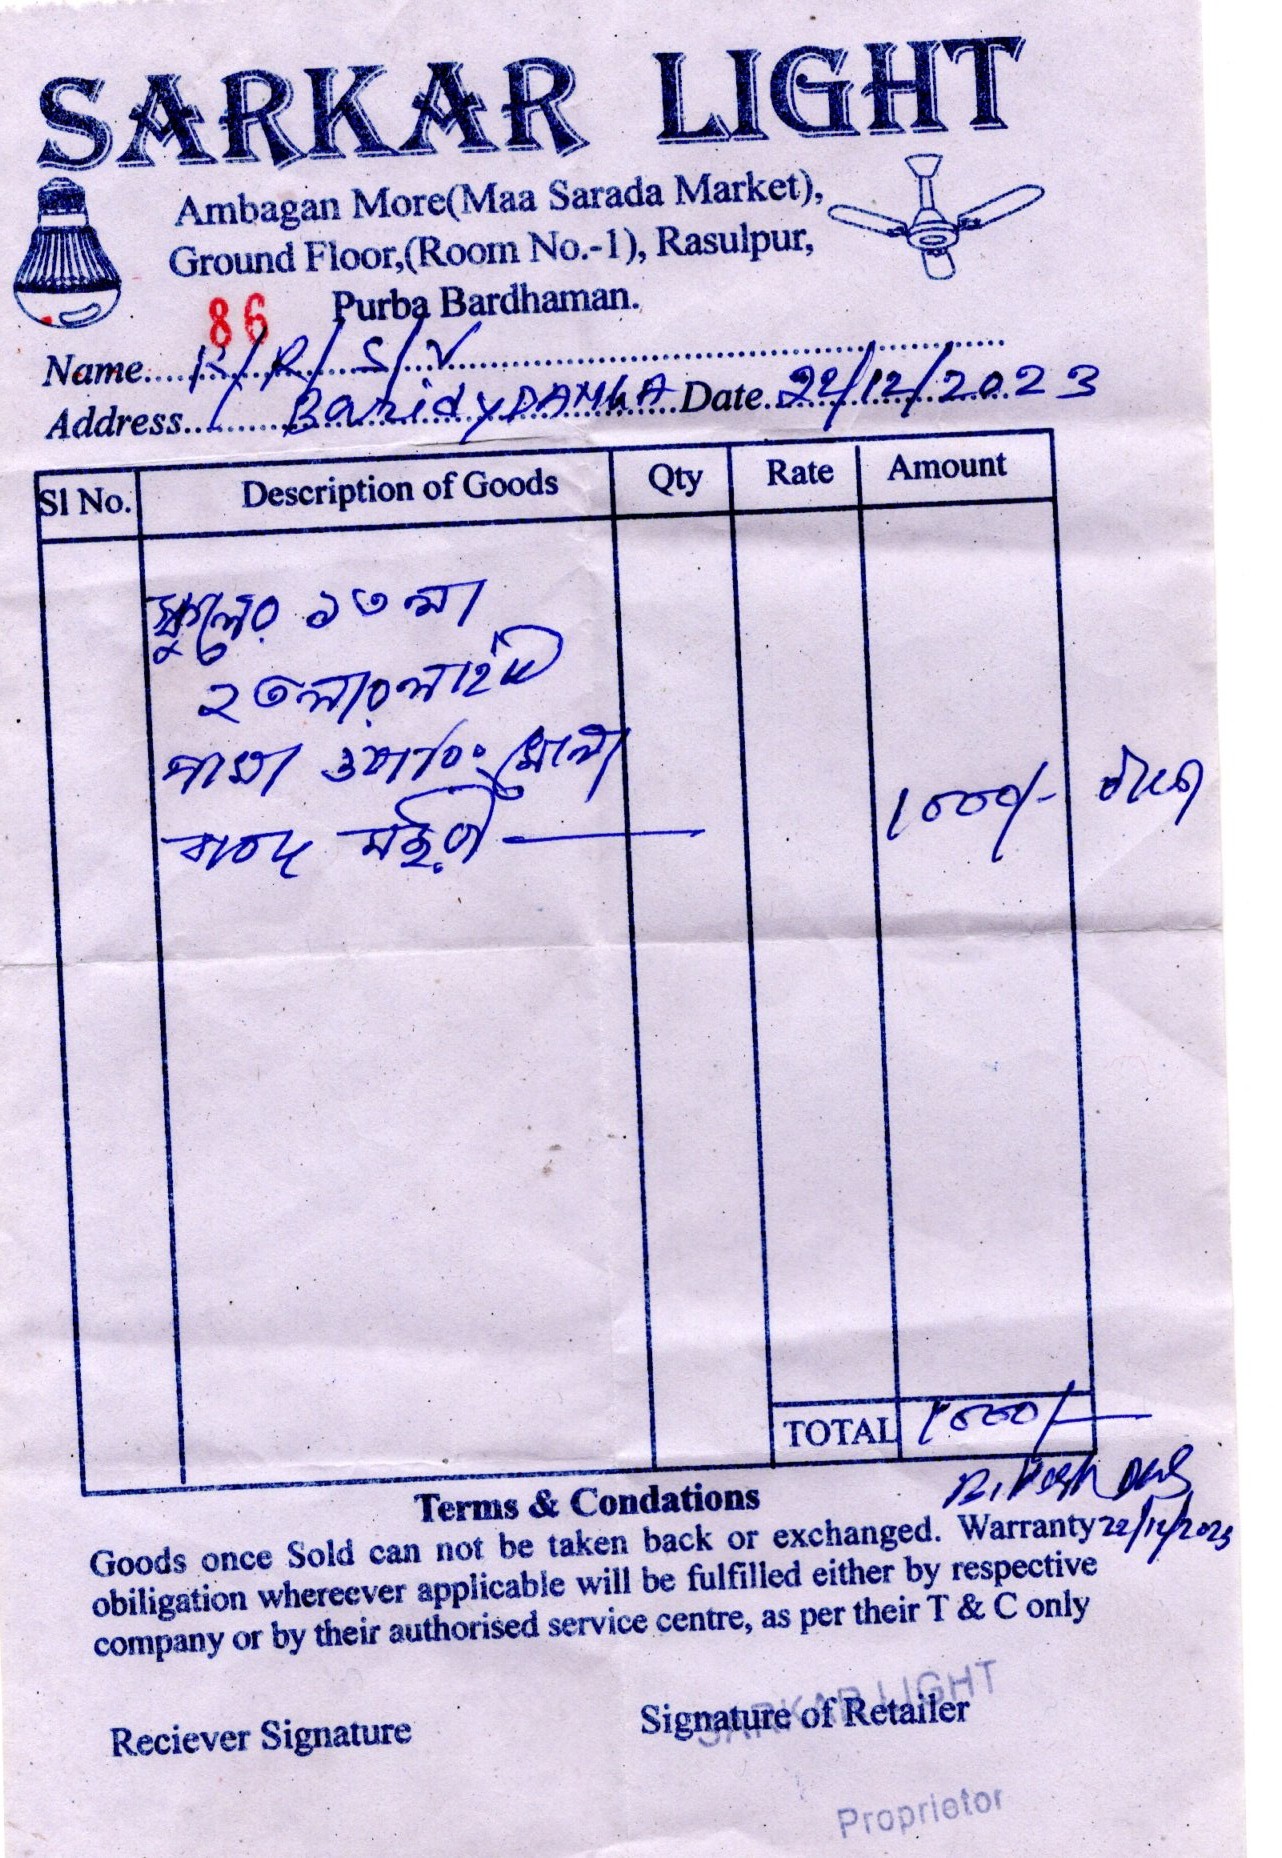 SARKAR LIGHT
Ambagan More(Maa Sarada Market),
Ground Floor,(Room No.-1), Rasulpur,
Purba Bardhaman.
86
Name.....R/R/S/V
Address... Date..22/12/2023
Sl No. Description of Goods Qty Rate Amount
স্কুলের ১তলা
২তলার লাইট
পাখা ওয়ারিং
বাবদ মজুরী
1000/-
TOTAL 1000/-
22/12/2023
Terms & Condations
Goods once Sold can not be taken back or exchanged. Warranty
obiligation whereever applicable will be fulfilled either by respective
company or by their authorised service centre, as per their T & C only
SARKAR LIGHT
Reciever Signature Signature of Retailer
Proprietor